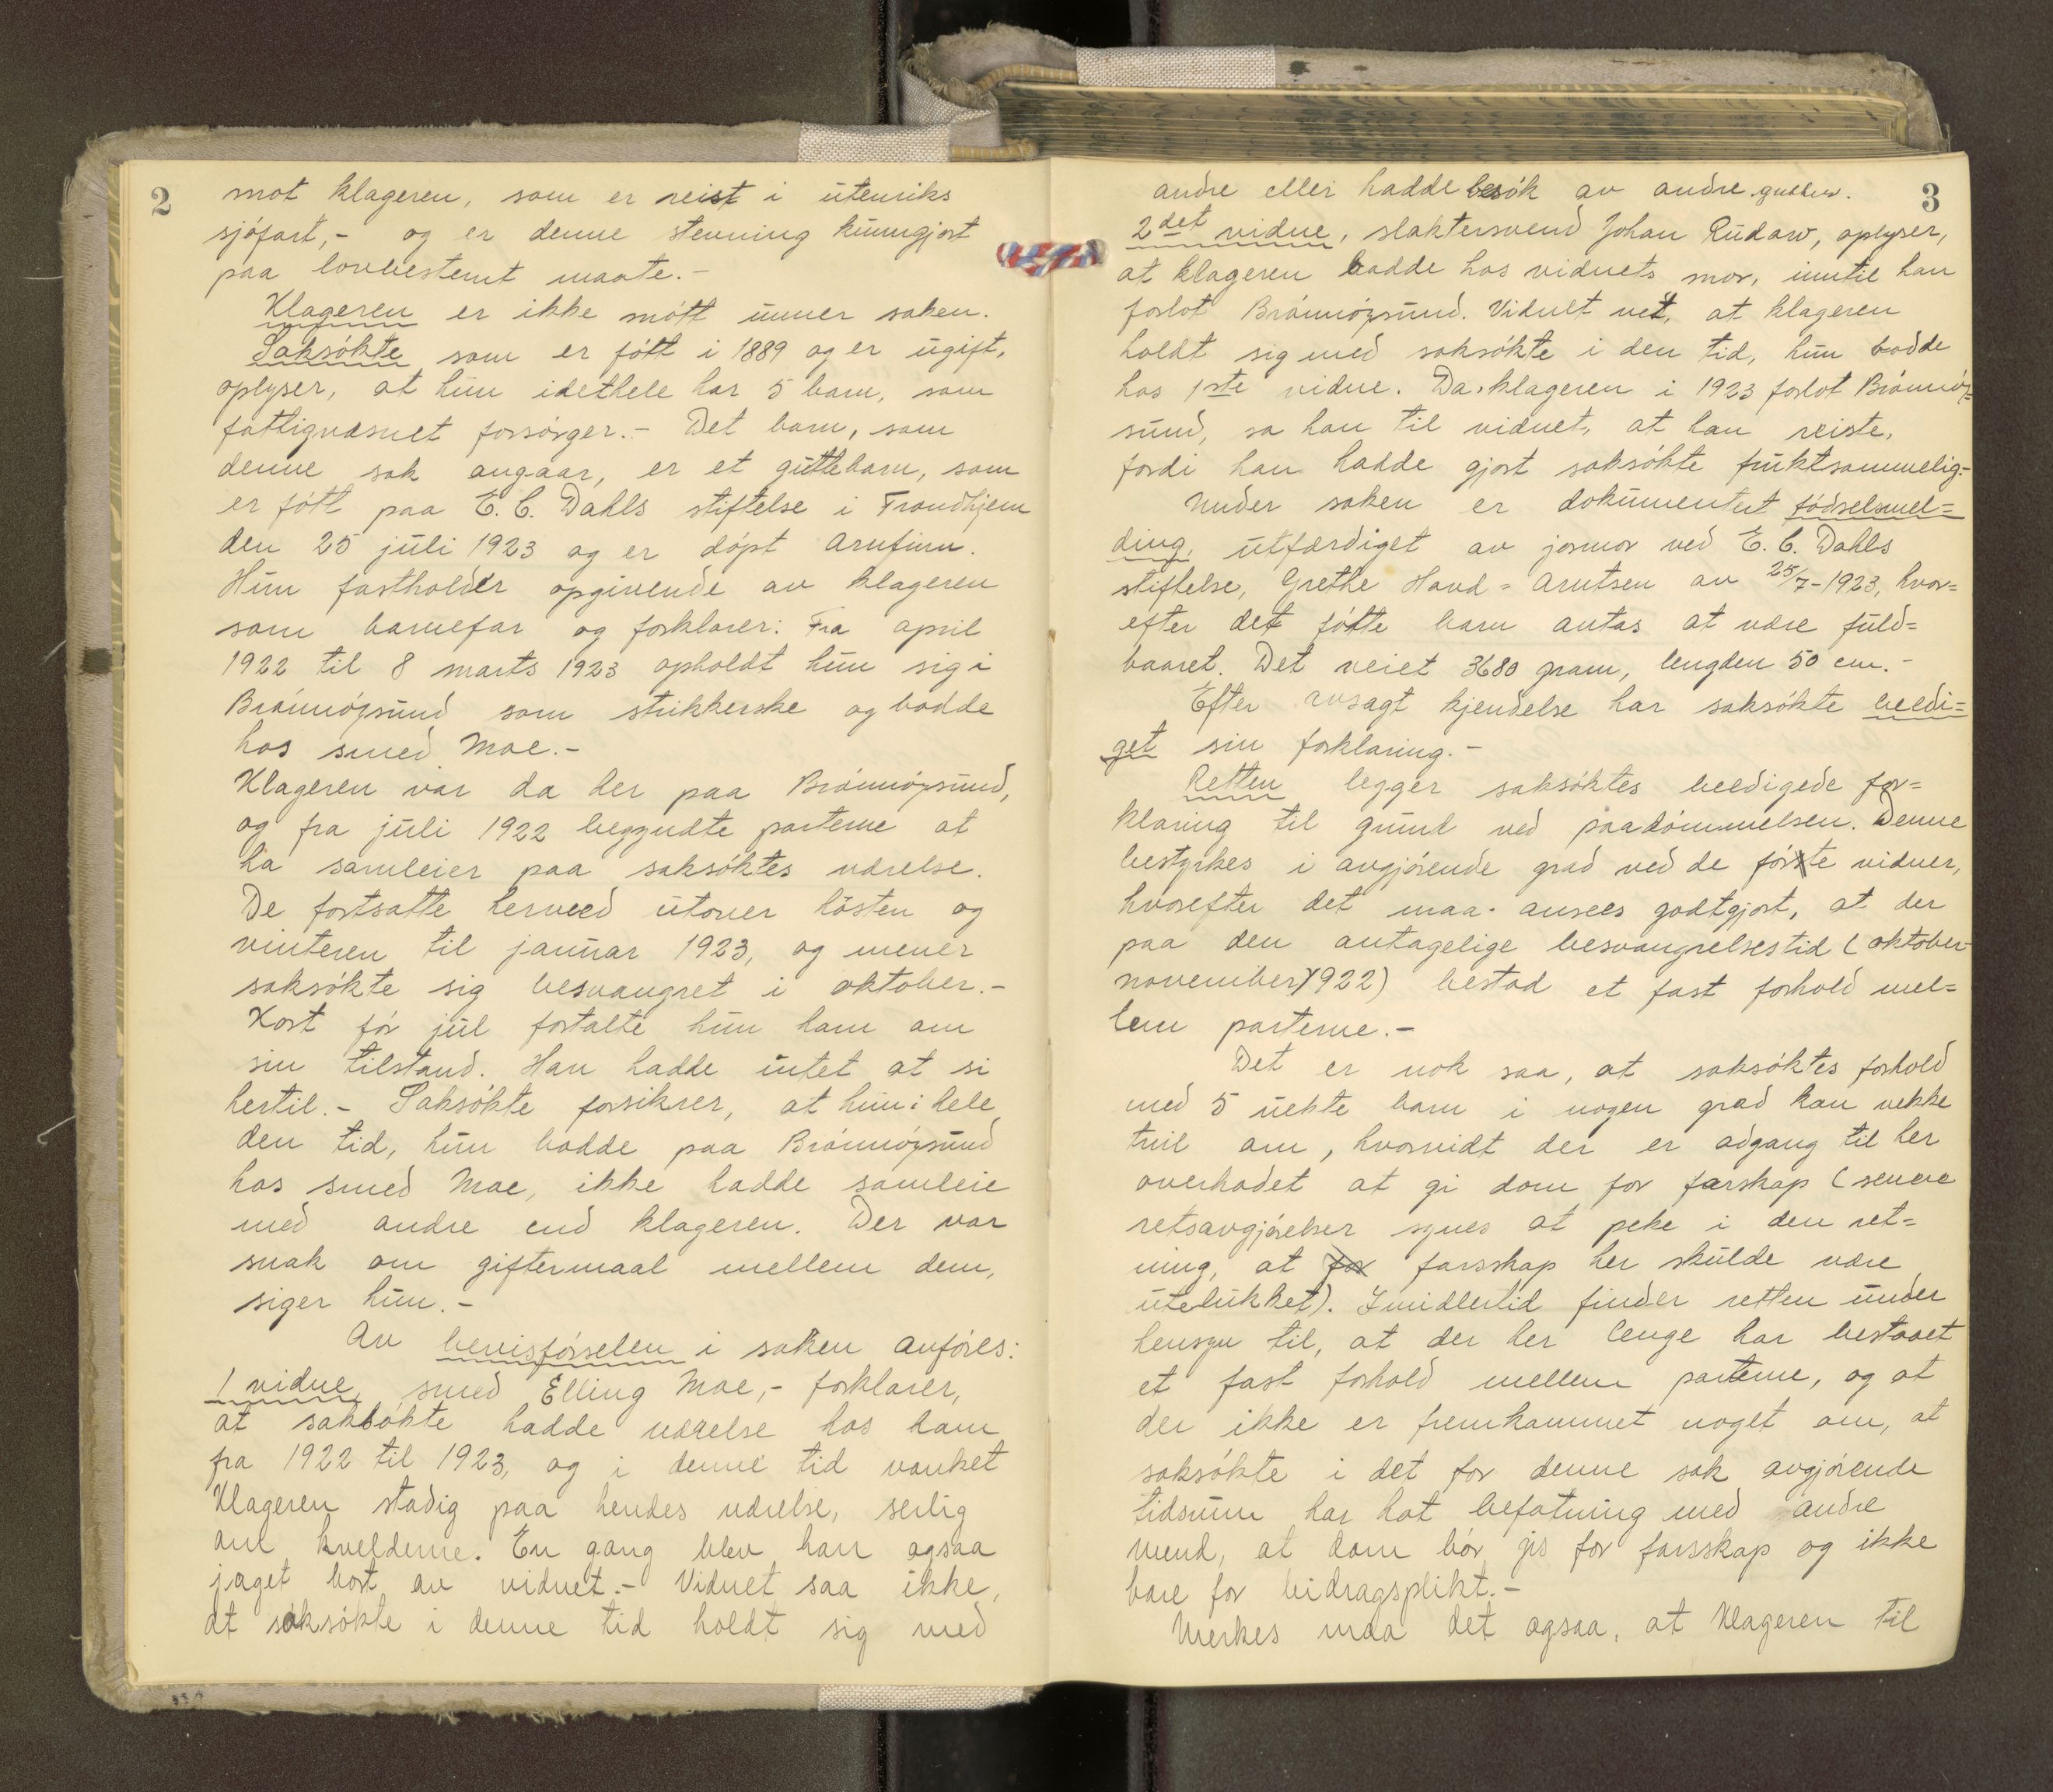 2
mot klageren, som er reist i utenriks
sjófart,- og er denne stevning kunngjort
paa lovbestemt maate.-
Klageren er ikke mótt under saken.
Saksókte som er fótt i 1889 og er ugift,
oplyser, at hun idethele har 5 barn, som
fattigvæsnet forsórger.- Det barn, som
denne sak angaar, er et guttebarn, som
er fótt paa E. C. Dahls stiftelse i Trondhjem
den 25 juli 1923 og er dópt Arnfinn.
Hun fastholder opgivende av klageren
som barnefar og forklarer: Fra april
1922 til 8 marts 1923 opholdt hun sig i
Brónnóysund som strikkerske og bodde
hos smed Moe.-
Klageren var da her paa Brónnóysund,
og fra juli 1922 begyndte parterne at
ha samleier paa saksóktes værelse.
De fortsatte herved utover hósten og
vinteren til januar 1923, og mener
saksókte sig besvangret i oktober.-
Kort fór jul fortalte hun ham om
sin tilstand. Han hadde intet at si
hertil.- Saksókte forsikrer, at hun i hele
den tid, hun bodde paa Brónnóysund
hos smed Moe, ikke hadde samleie
med andre end klageren. Der var
snak om giftermaal mellem dem,
siger hun.-
Av bevisfórselen i saken anfóres:
1 vidne, smed Elling Moe,- forklarer,
at saksókte hadde værelse hos ham
fra 1922 til 1923, og i denne tid vanket
Klageren stadig paa hendes værelse, serlig
om kvelderne. En gang blev han ogsaa
jaget bort av vidnet.- Vidnet saa ikke,
at saksókte i denne tid holdt sig med
3
andre eller hadde besók av andre gutter.
2det vidne, slaktersvend Johan Rudaw, oplyser,
at klageren bodde hos vidnets mor, inntil han
forlot Brónnóysund. Vidnet vet, at klageren
holdt sig med saksókte i den tid, hun bodde
hos 1ste vidne. Da klageren i 1923 forlot Brónnóy=
sund, sa han til vidnet, at han reiste,
fordi han hadde gjort saksókte fruktsommelig.-
Under saken er dokumentert fódselsmel=
ding, utfærdiget av jormor ved E. C. Dahls
stiftelse, Grethe Hovd = Arntsen av 25/7-1923, hvor=
efter det fótte barn antas at være fuld=
baaret. Det veiet 3680 gram, lengden 50 cm.-
Efter avsagt kjendelse har saksókte beedi=
get sin forklaring.-
Retten legger saksóktes beedigede for=
klaring til grund ved paadómmelsen. Denne
bestyrkes i avgjórende grad ved de fórte vidner,
hvorefter det maa ansees godtgjort, at der
paa den antagelige besvangrelsestid (oktober-
november 1922) bestod et fast forhold mel=
lem parterne.-
Det er nok saa, at saksóktes forhold
med 5 uekte barn i nogen grad kan vekke
tvil om, hvorvidt der er adgang til her
overhodet at gi dom for farskap (senere
retsavgjórelser synes at peke i den ret=
ning, at for farsskap her skulde være
utelukket). Imidlertid finder retten under
hensyn til, at der her lenge har bestaaet
et fast forhold mellem parterne, og at
der ikke er fremkommet noget om, at
saksókte i det for denne sak avgjórende
tidsrum har hat befatning med andre
mend, at dom bór gis for farsskap og ikke
bare for bidragsplikt.-
Merkes maa det ogsaa, at Klageren til